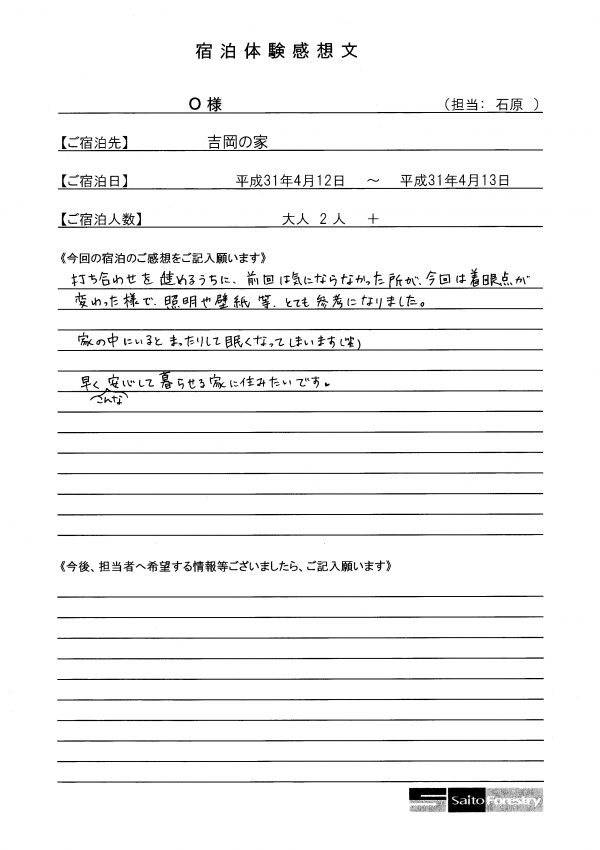 宿泊体験感想文
O 様 (担当: 石原 )
【ご宿泊先】 吉岡の家
【ご宿泊日】 平成31年4月12日 ～ 平成31年4月13日
【ご宿泊人数】 大人 2 人 ＋
《今回の宿泊のご感想をご記入願います》
打ち合わせを進めるうちに、前回は気にならなかった所が、今回は着眼点が
変わった様で、照明や壁紙等、とても参考になりました。
家の中にいるとまったりして眠くなってしまいます(笑)
早く安心して暮らせる家に住みたいです。
こんな
《今後、担当者へ希望する情報等ございましたら、ご記入願います》
Saito Forestry